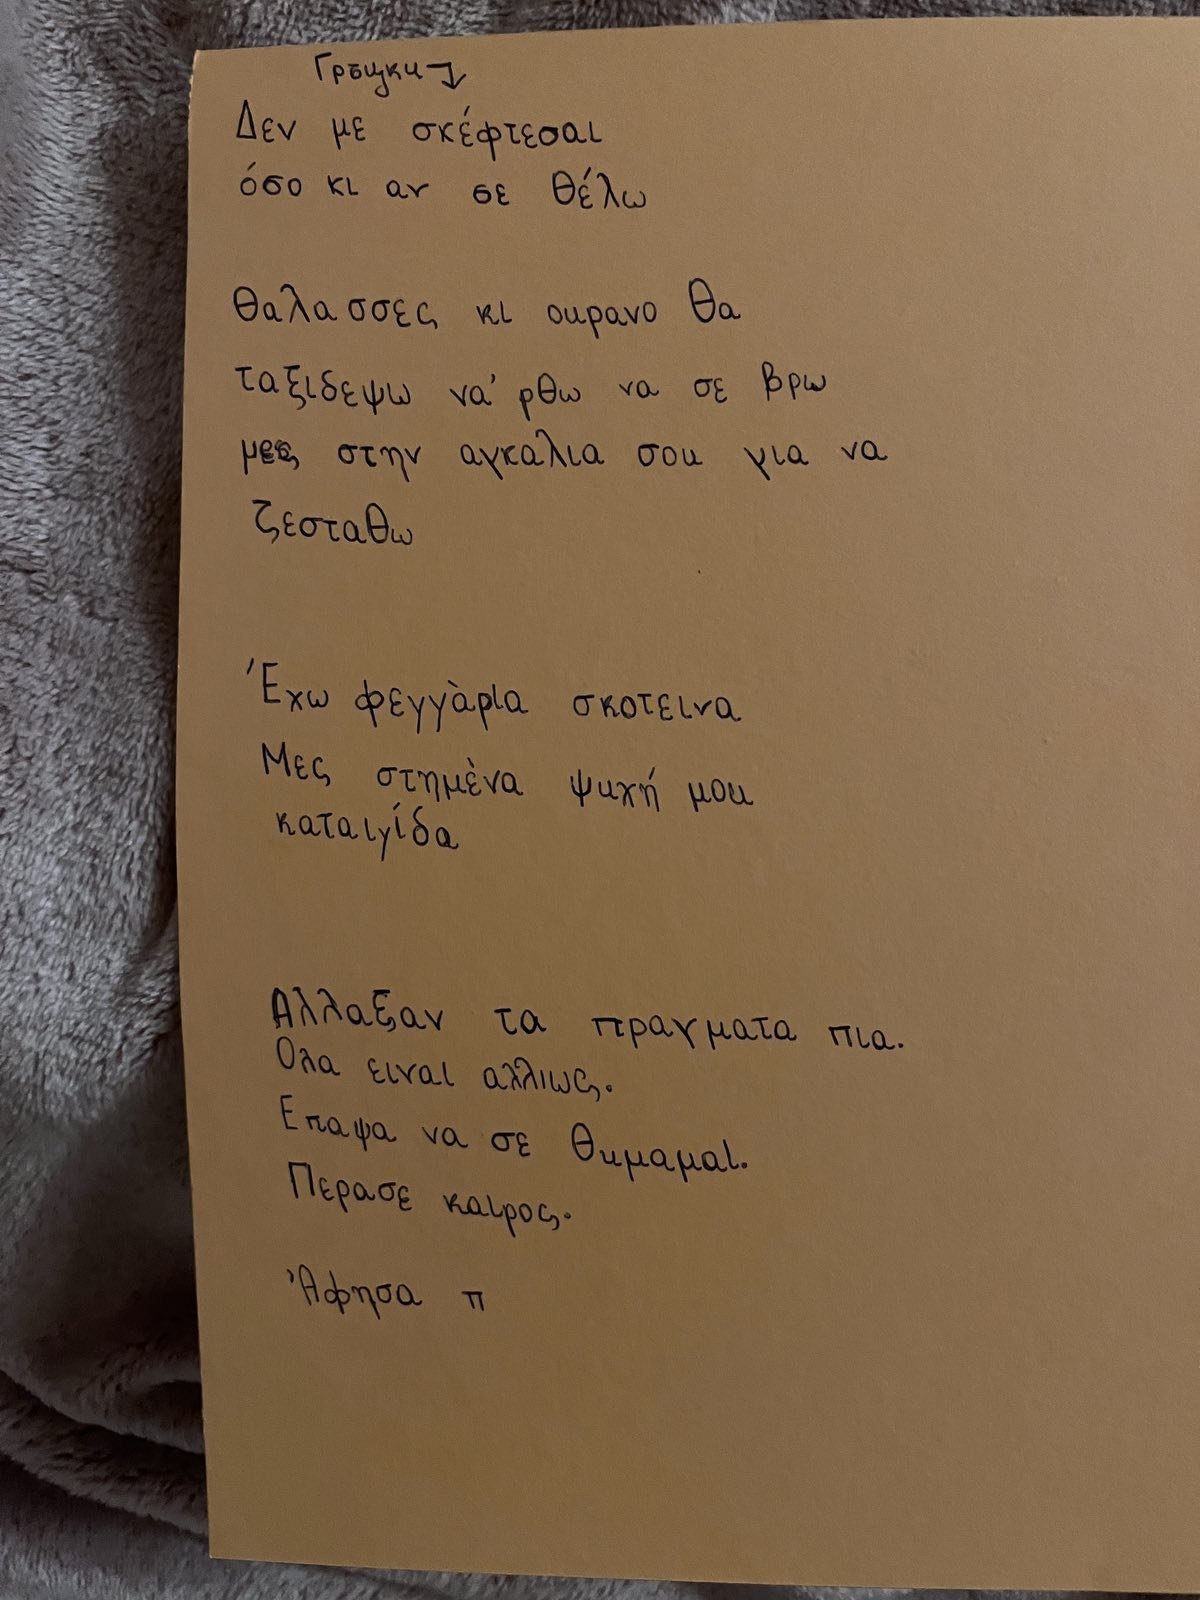 Грчки
Δεν με σκέφτεσαι
όσο κι αν σε θέλω
θαλασσες κι ουρανο θα
ταξιδεψω να' ρθω να σε βρω
μες στην αγκαλια σου για να
ζεσταθω
Έχω φεγγὰρια σκοτεινα
Μες στημὲνα ψυχή μου
καταιγίδα
Αλλαξαν τα πραγματα πια.
Ολα ειναι αλλιως.
Επαψα να σε θυμαμαι.
Περασε καιρος.
Άφησα π